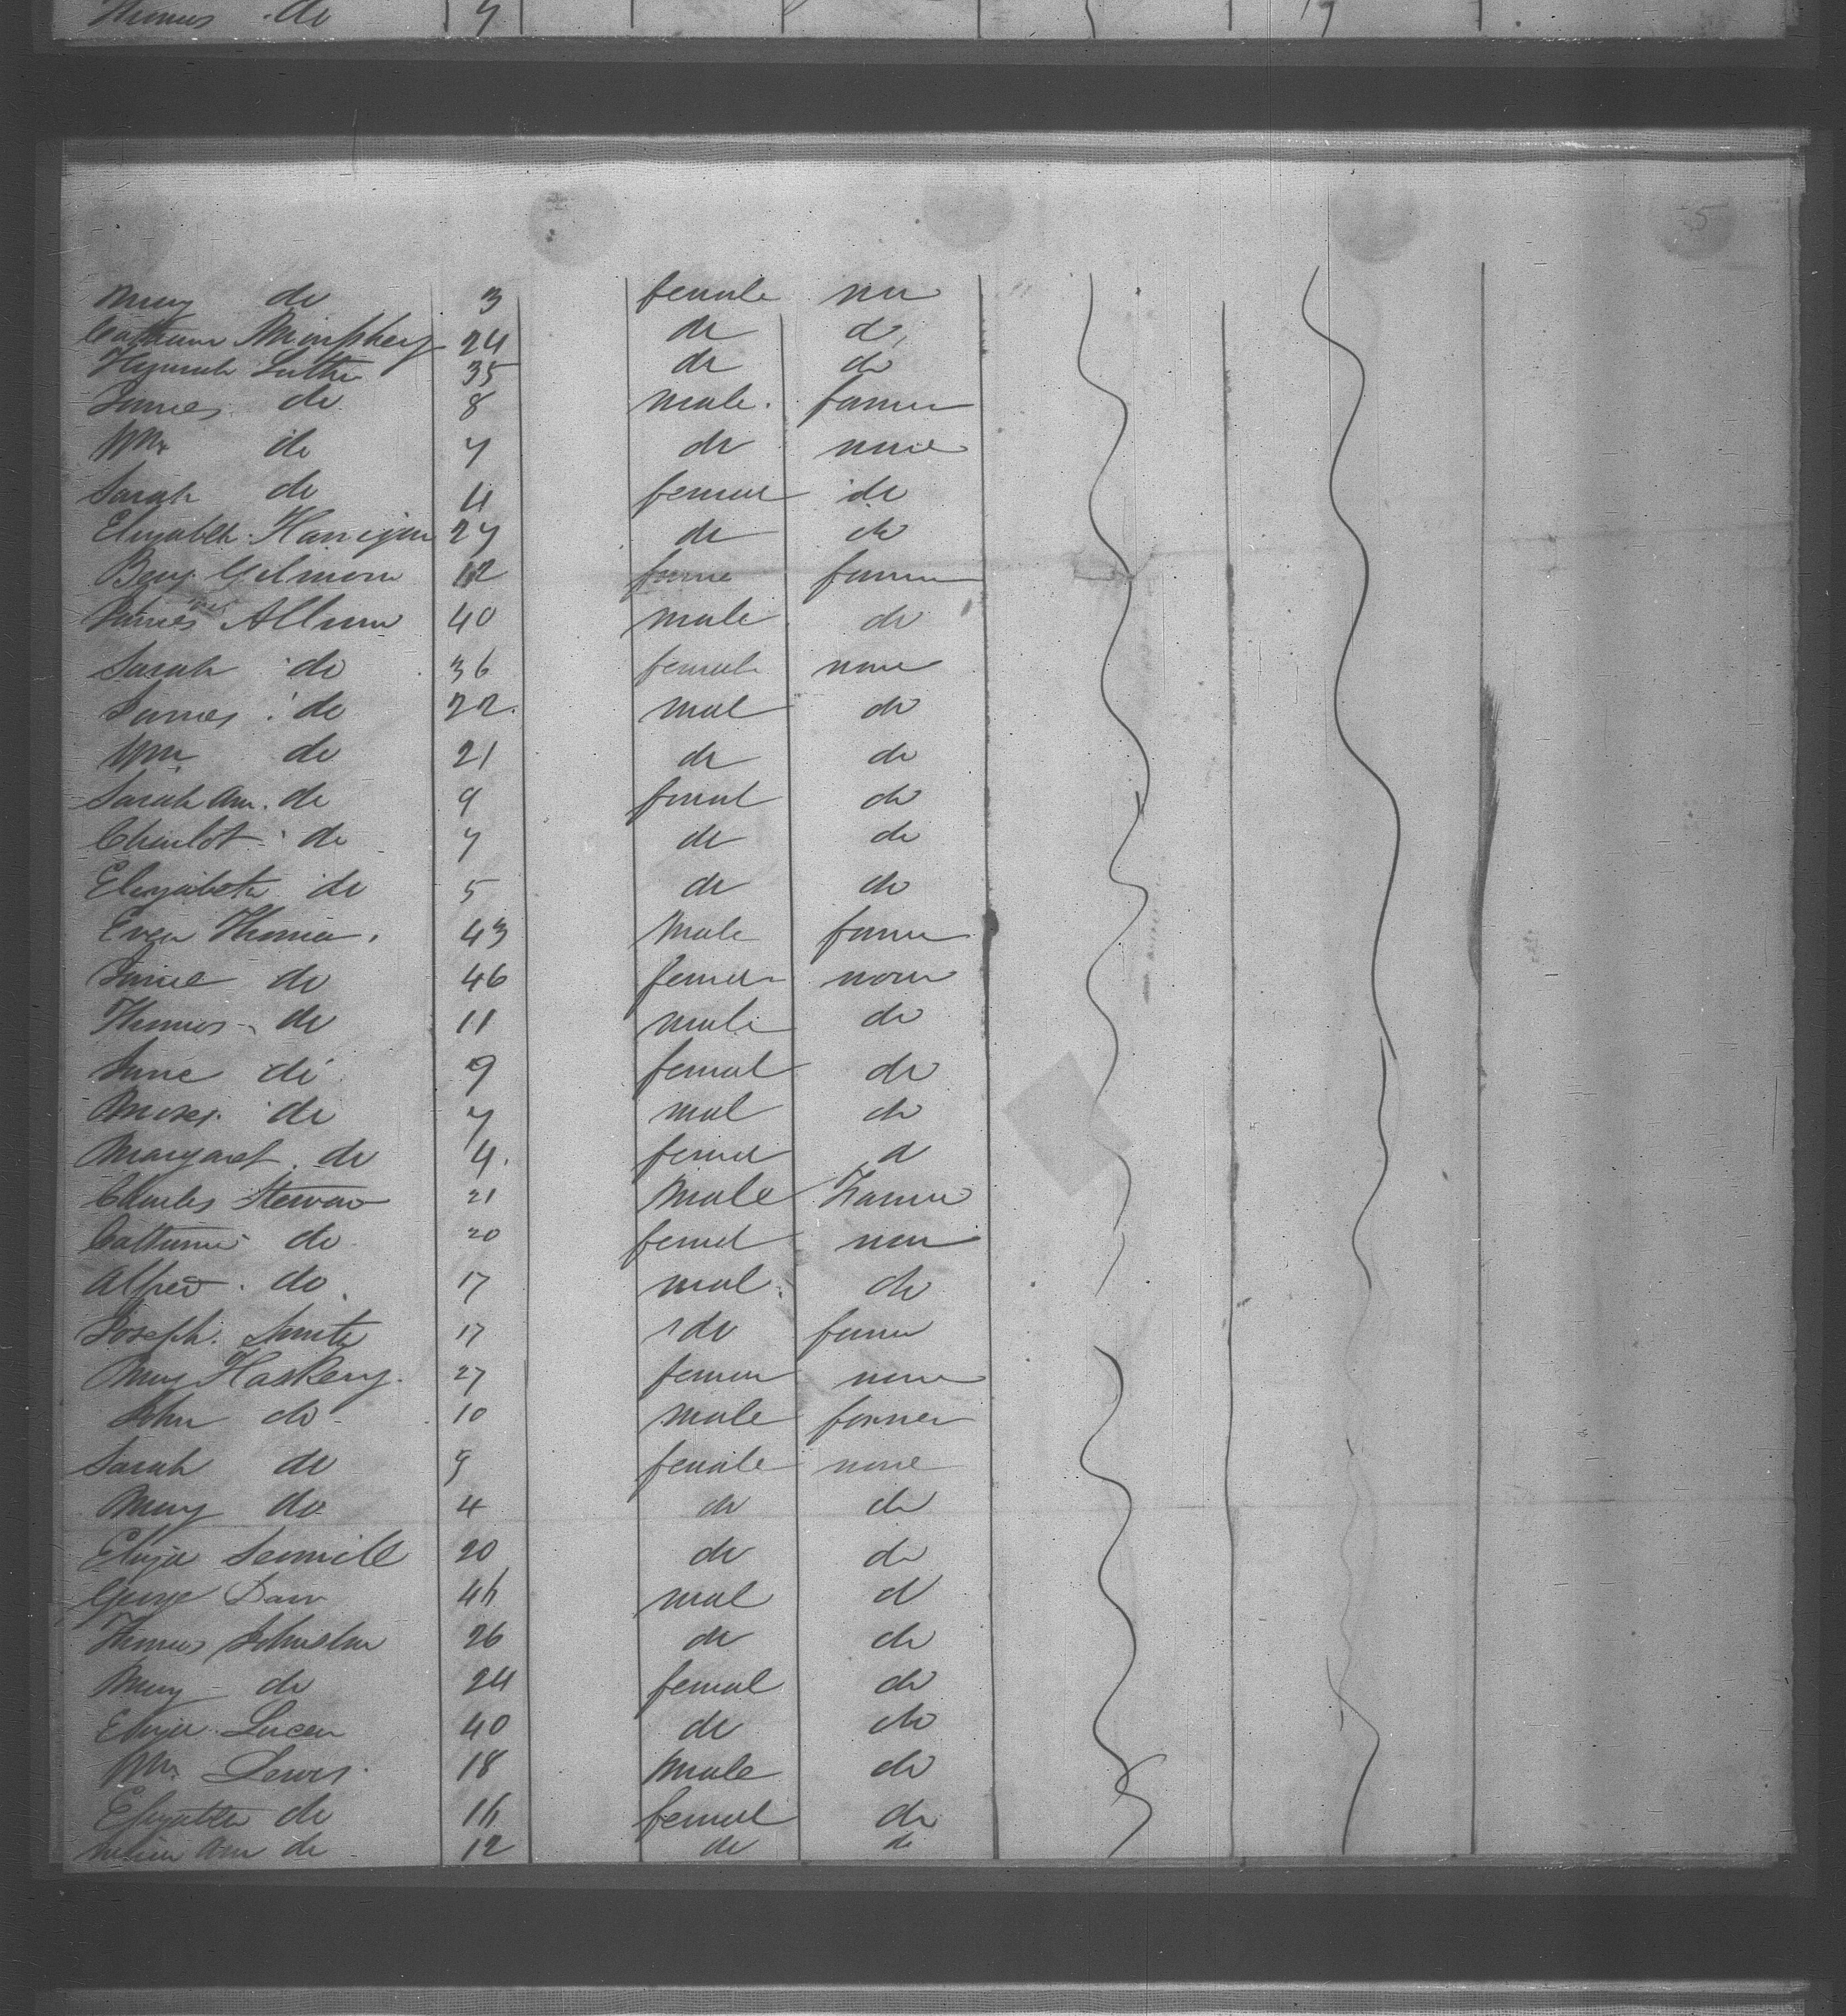 Thomas do 7
5
Mary do 3 female non
Catherine Murphey 24 do do
Hannah Luther 35 do do
James do 8 male farmer
Wm do 7 do none
Sarah do 4 female do
Elizabeth Hanigan 27 do do
Benj Gilmore 12 farmer
James Allmm 40 male do
Sarah do 36 female none
James do 22 mal do
Wm do 21 do do
Sarah Ann do 9 femal do
Charlot do 7 do do
Elizabeth do 5 do do
Evan Thomas 43 Male farmer
Jane do 46 female none
Thomas do 11 male do
Jane do 9 femal do
Moses do 7 mal do
Margaret do 4 femal d
Charles Steward 21 Male Farmer
Catherine do 20 femal non
Alfred do 17 mal do
Joseph Smith 17 do farmer
Mary Haskery 27 female none
John do 10 male farmer
Sarah do 9 female none
Mary do 4 do do
Eliza 20 do do
George Daw 46 mal d
Thomas Johnston 26 do do
Mary do 24 femal do
Eliza Lucan 40 do do
Wm Lewis 18 Male do
Elizabeth do 16 femal do
Ann do 12 do do